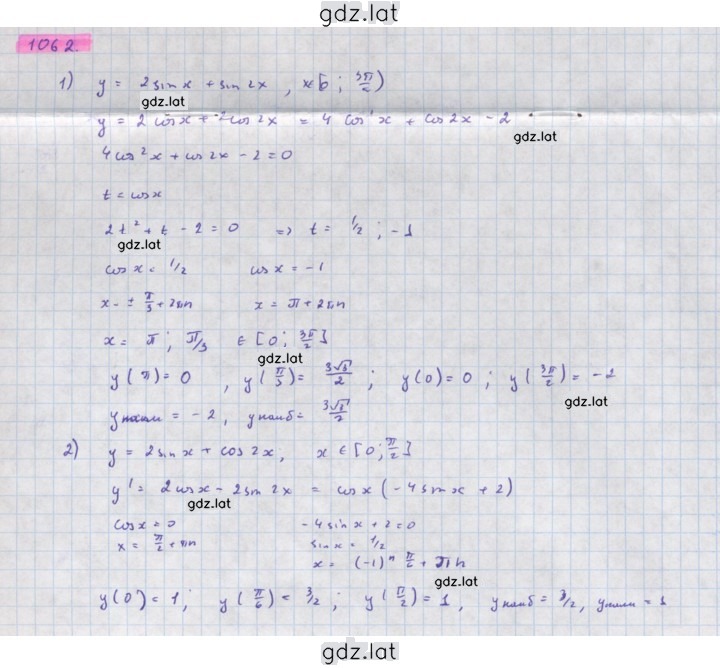 gdz.lat
1062.
1) y = 2 sin x + sin 2x , x∈[0 ; 3π/2]
gdz.lat
y = 2 cos x + 2 cos 2x = 4 cos² x + cos 2x - 2
gdz.lat
4 cos² x + cos 2x - 2 = 0
t = cos x
2t² + t - 2 = 0 => t = 1/2 ; -1
gdz.lat
cos x = 1/2 cos x = -1
x = ± π/3 + 2πn x = π + 2πn
x = π ; π/3 ∈ [0 ; 3π/2]
gdz.lat
y(π) = 0 , y(π/3) = 3√3/2 ; y(0) = 0 ; y(3π/2) = -2
gdz.lat
y наим = -2 , y наиб = 3√3/2
2) y = 2 sin x + cos 2x , x ∈ [0 ; π/2]
y' = 2 cos x - 2 sin 2x = cos x (-4 sin x + 2)
gdz.lat
cos x = 0 -4 sin x + 2 = 0
x = π/2 + πn sin x = 1/2
x = (-1)ⁿ π/6 + πn
gdz.lat
y(0) = 1 ; y(π/6) = 3/2 ; y(π/2) = 1 , y наиб = 3/2 , y наим = 1
gdz.lat